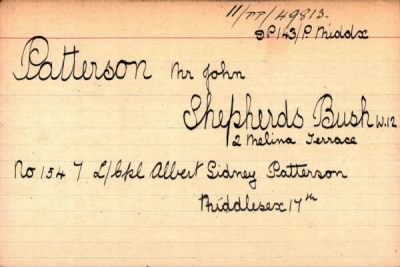 11/PP/49813.
SP143/P. Middx
Patterson Mr John
Shepherds Bush W.12
2 Melina Terrace
No 1547 L/Cpl Albert Sidney Patterson
Middlesex 17th